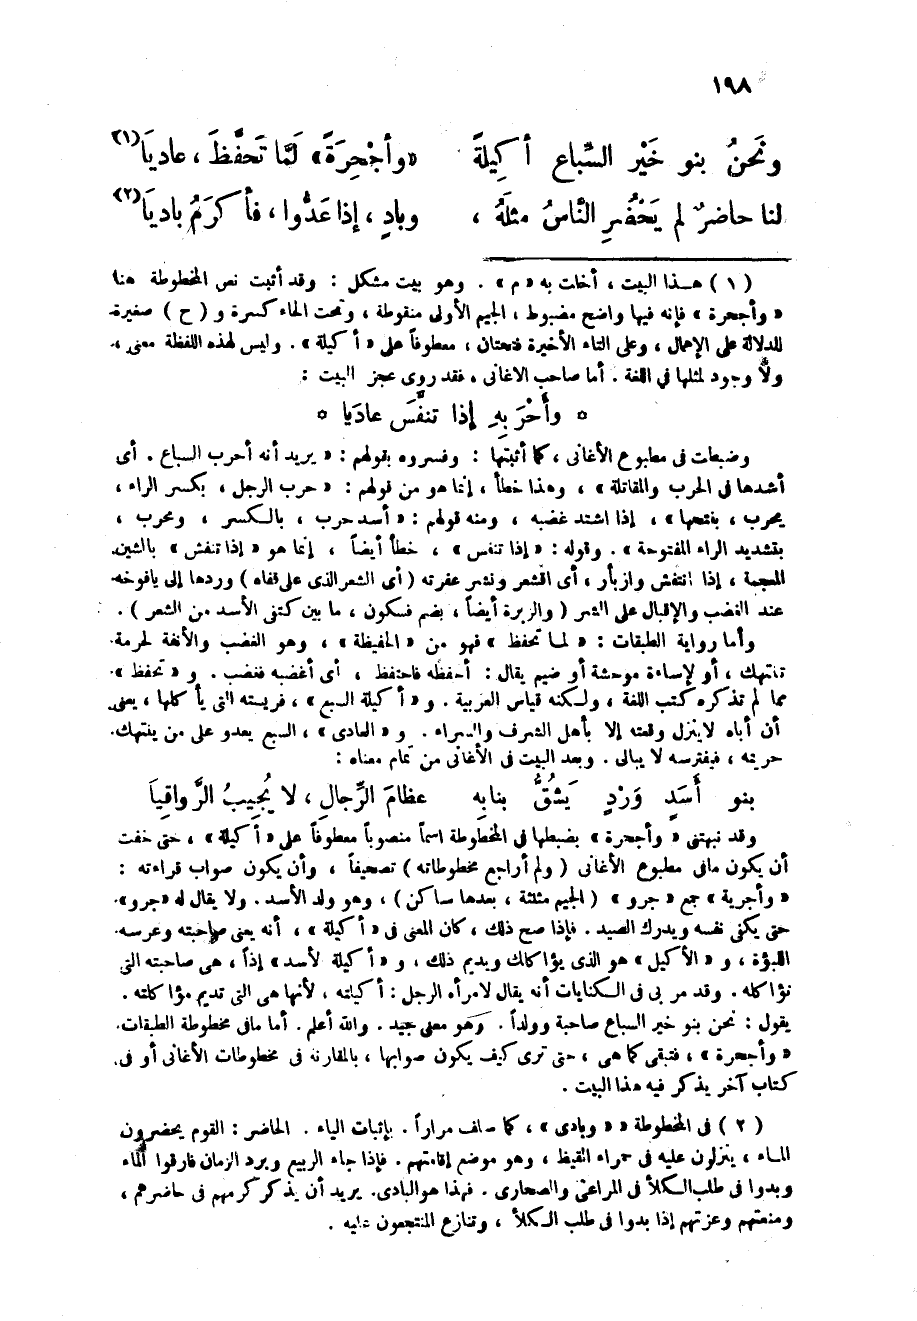 ١٩٨
ونَحنُ بنو خَيْرِ السِّباعِ أكِيلةً «وأجْحِرَةً» لَمَّا تَحفَّظَ ، عاديَا(١)
لنا حاضرٌ لم يَحْضُرِ النَّاسُ مثلَهُ ، وبادٍ ، إذا عَدُّوا ، فأكرَمُ باديَا(٢)
(١) هــذا البيت ، أخلت به «م» . وهو بيت مشكل : وقد أثبت نص المخطوطة هنا
«وأجحرة» فإنه فيها واضح مضبوط ، الجيم الأولى منقوطة ، وتحت الحاء كسرة و (ح) صغيرة
للدلالة على الإهمال ، وعلى التاء الأخيرة فتحتان ، معطوفاً على «أكيلة» . وليس لهذه اللفظة معنى ،
ولا وجود لمثلها فى اللغة . أما صاحب الاغانى ، فقد روى عجز البيت :
* وأَحْرَبِهِ إذا تنفَّسَ عادَيا *
وضبطت فى مطبوع الأغانى ، كما أثبتها : وفسروه بقولهم : « يريد أنه أحرب السباع . أى
أشدها فى الحرب والمقاتلة » ، وهذا خطأ ، إنما هو من قولهم : « حرب الرجل ، بكسر الراء ،
يحرب ، بفتحها » ، إذا اشتد غضبه ، ومنه قولهم : «أسد حرب ، بالكسر ، ومحرب ،
بتشديد الراء المفتوحة » . وقوله : «إذا تنفس» ، خطأ أيضاً ، إنما هو «إذا تنفش» بالشين
المعجمة ، إذا انتفش وازبأر ، أى اقشعر ونشر عفرته (أى الشعر الذى على قفاه) وردها إلى يافوخه
عند الغضب والإقبال على الشر (والزبرة أيضاً ، بضم فسكون ، ما بين كتفى الأسد من الشعر) .
وأما رواية الطبقات : «لما تحفظ» فهو من «الحفيظة» ، وهو الغضب والأنفة لحرمة
تنتهك ، أو لإساءة موحشة أو ضيم يقال : أحفظه فاحتفظ ، أى أغضبه فغضب . و «تحفظ»
مما لم تذكره كتب اللغة ، ولكنه قياس العربية . و «أكيلة السبع» ، فريسته التى يأكلها ، يعنى
أن أباه لا ينزل وقعته إلا بأهل الشرف والسراء . و «العادى» ، السبع يعدو على من ينتهك
حريمه ، فيفترسه لا يبالى . وبعد البيت فى الأغانى من تمام معناه :
بنو أَسَدٍ وَرْدٍ يَشُقُّ بنابِهِ عظامَ الرِّجالِ ، لا يُجِيبُ الرَّواقِيَا
وقد نبهتنى «وأجحرة» بضبطها فى المخطوطة اسماً منصوباً معطوفاً على «أكيلة» ، حتى خفت
أن يكون مافى مطبوع الأغانى (ولم أراجع مخطوطاته) تصحيفاً ، وأن يكون صواب قراءته :
«وأجرية» جمع «جرو» (الجيم مثلثة ، بعدها ساكن) ، وهو ولد الأسد . ولا يقال له «جرو»
حتى يكفى نفسه ويدرك الصيد . فإذا صح ذلك ، كان المعنى فى «أكيلة» ، أنه يعنى صاحبته وعرسه
اللبؤة ، و «الأكيل» هو الذى يؤاكلك ويديم ذلك ، و «أكيلة لأسد» إذاً ، هى صاحبته التى
تؤاكله . وقد مر بى فى الكنايات أنه يقال لامرأه الرجل : أكيلته ، لأنها هى التى تديم مؤاكلته .
يقول : نحن بنو خير السباع صاحبة وولداً . وهو معنى جيد . والله أعلم . أما مافى مخطوطة الطبقات
«وأجحرة» ، فتبقى كما هى ، حتى ترى كيف يكون صوابها ، بالمقارنة فى مخطوطات الأغانى أو فى
كتاب آخر يذكر فيه هذا البيت .
(٢) فى المخطوطة «وبادى» ، كما سلف مراراً . بإثبات الياء . الحاضر : القوم يحضرون
المـاء ، ينزلون عليه فى حمراء القيظ ، وهو موضع إقامتهم . فإذا جاء الربيع وبرد الزمان فارقوا الماء
وبدوا فى طلب الكلأ فى المراعى والصحارى . فهذا هو البادى . يريد أن يذكر كرمهم فى حاضرهم ،
ومنعتهم وعزتهم إذا بدوا فى طلب الكلأ ، وتنازع المنتجعون عليه .